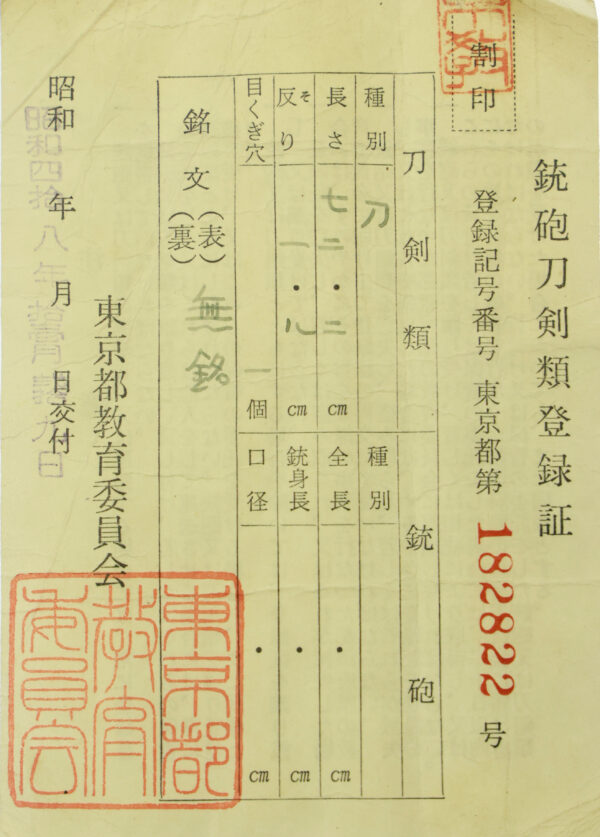 割印
銃砲刀剣類登録証
登録記号番号 東京都第 182822 号
刀剣類
種別 刀
長さ 七二・二 cm
反り そ 一・八 cm
目くぎ穴 一 個
銘文 (表) (裏) 無銘
銃砲
種別
全長 ・ cm
銃身長 ・ cm
口径 ・ cm
東京都教育委員会
昭和 年 月 日交付
昭和四拾八年 九日
東京都
教育
委員会